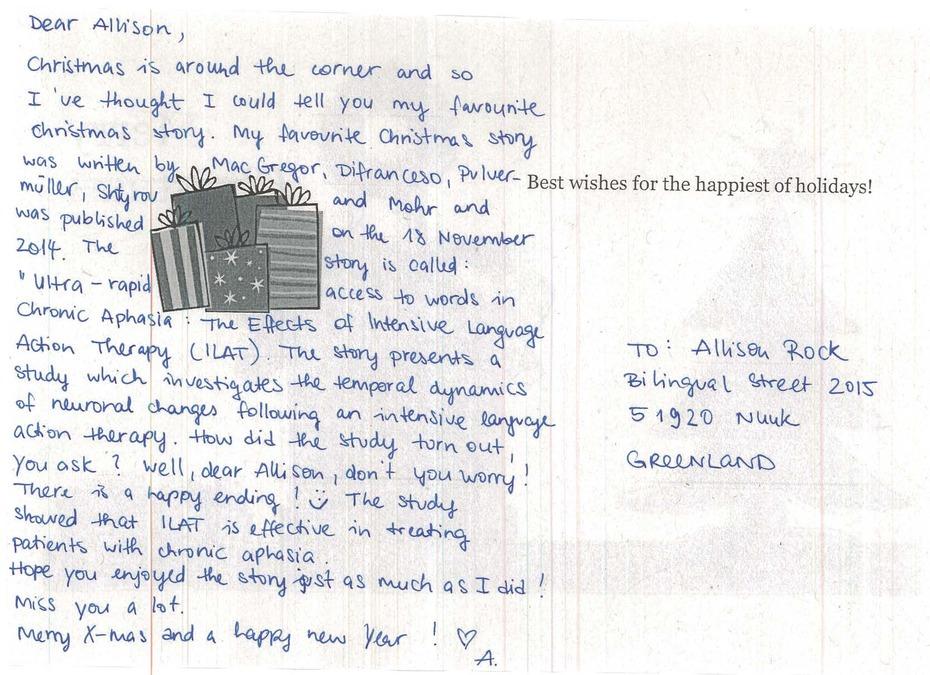 Dear Allison,
Christmas is around the corner and so
I 've thought I could tell you my favourite
christmas story. My favourite Christmas story
was written by Mac Gregor, Difranceso, Pulver-
müller, Shtyrov and Mohr and
was published on the 18 November
2014. The story is called:
"Ultra-rapid access to words in
Chronic Aphasia: The Effects of Intensive Language
Action Therapy (ILAT). The story presents a
study which investigates the temporal dynamics
of neuronal changes following an intensive language
action therapy. How did the study turn out,
you ask? Well, dear Allison, don't you worry!
There is a happy ending! The study
showed that ILAT is effective in treating
patients with chronic aphasia.
Hope you enjoyed the story just as much as I did!
Miss you a lot.
Merry X-mas and a happy new Year! ♡
A.
Best wishes for the happiest of holidays!
TO: Allison Rock
Bilingual Street 2015
51920 Nuuk
GREENLAND